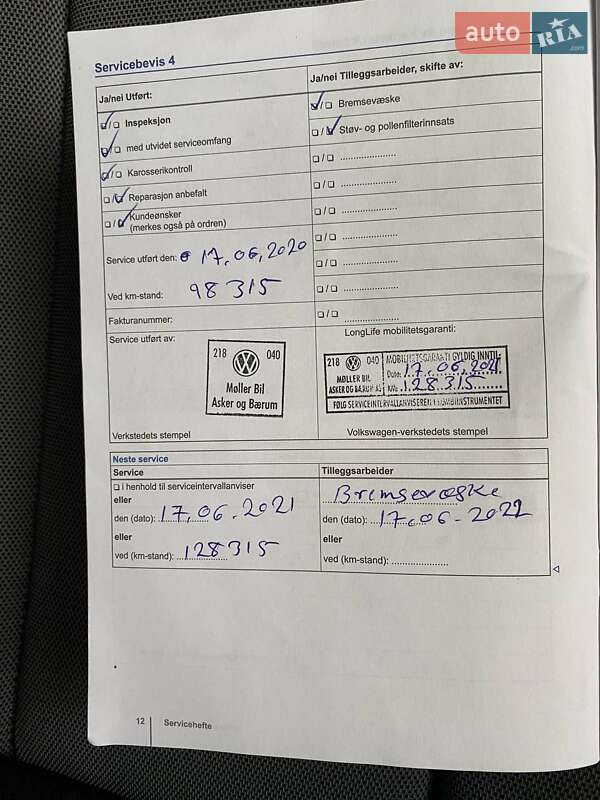 auto RIA.com
Servicebevis 4
Ja/nei Utført:
☑/☐ Inspeksjon
☑/☐ med utvidet serviceomfang
☑/☐ Karosserikontroll
☐/☑ Reparasjon anbefalt
☐/☑ Kundeønsker
(merkes også på ordren)
Service utført den: 17.06.2020
Ved km-stand: 98315
Fakturanummer:
Ja/nei Tilleggsarbeider, skifte av:
☑/☐ Bremsevæske
☐/☑ Støv- og pollenfilterinnsats
☐/☐ .....................
☐/☐ .....................
☐/☐ .....................
☐/☐ .....................
☐/☐ .....................
☐/☐ .....................
☐/☐ .....................
Service utført av:
218 VW 040
Møller Bil
Asker og Bærum
Verkstedets stempel
LongLife mobilitetsgaranti:
218 VW 040 MOBILITETSGARANTI GYLDIG INNTIL:
MØLLER BIL Dato: 17.06.2021
ASKER OG BÆRUM AS KM: 128315
FØLG SERVICEINTERVALLANVISEREN I KOMBIINSTRUMENTET
Volkswagen-verkstedets stempel
Neste service
Service
☐ i henhold til serviceintervallanviser
eller
den (dato): 17.06.2021
eller
ved (km-stand): 128315
Tilleggsarbeider
Bremsevæske
den (dato): 17.06-2022
eller
ved (km-stand): .....................
12 Servicehefte